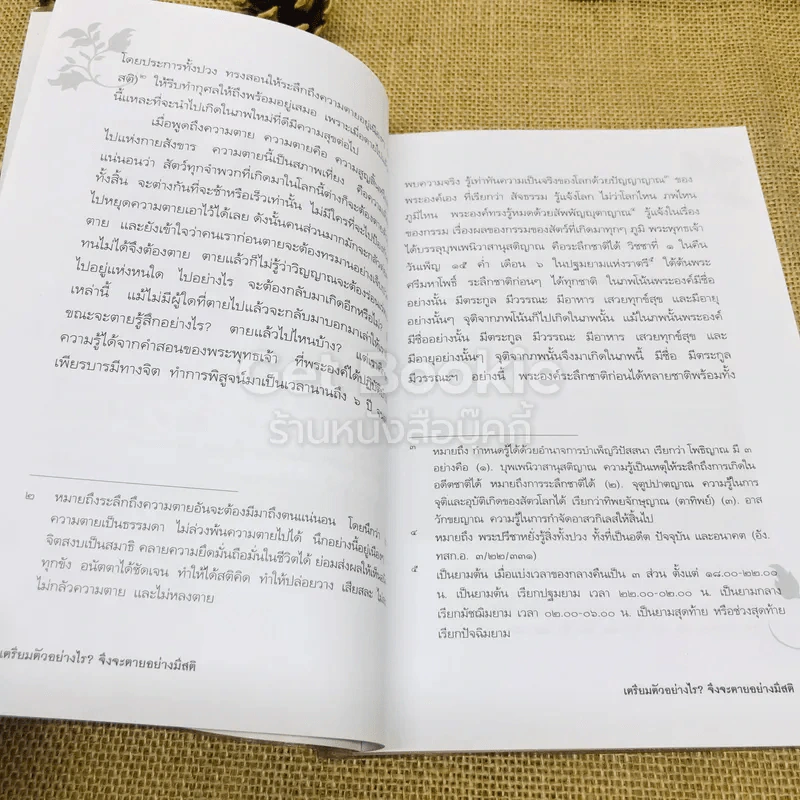 โดยประการทั้งปวง ทรงสอนให้ระลึกถึงความตายอยู่เนือง
สติ)๒ ให้รีบทำกุศลให้ถึงพร้อมอยู่เสมอ เพราะเมื่อตาย
นี้แหละที่จะนำไปเกิดในภพใหม่ที่ดีมีความสุขต่อไป
เมื่อพูดถึงความตาย ความตายคือ ความสูญสิ้น
ไปแห่งกายสังขาร ความตายนี้เป็นสภาพเที่ยง คือ
แน่นอนว่า สัตว์ทุกจำพวกที่เกิดมาในโลกนี้ต่างก็จะต้องตาย
ทั้งสิ้น จะต่างกันที่จะช้าหรือเร็วเท่านั้น ไม่มีใครที่จะไป
ไปหยุดความตายเอาไว้ได้เลย ดังนั้นคนส่วนมากมักจะกลัว
ตาย และยังเข้าใจว่าคนเราก่อนตายจะต้องทรมานอย่าง
ทนไม่ได้จึงต้องตาย ตายแล้วก็ไม่รู้ว่าวิญญาณจะต้องร่อนเร่
ไปอยู่แห่งหนใด ไปอย่างไร จะต้องกลับมาเกิดอีกหรือไม่
เหล่านี้ แม้ไม่มีผู้ใดที่ตายไปแล้วจะกลับมาบอกมาเล่าให้
ขณะจะตายรู้สึกอย่างไร? ตายแล้วไปไหนบ้าง? แต่เรา
ความรู้ได้จากคำสอนของพระพุทธเจ้า ที่พระองค์ได้ปฏิบัติ
เพียรบารมีทางจิต ทำการพิสูจน์มาเป็นเวลานานถึง ๖ ปี
๒ หมายถึงระลึกถึงความตายอันจะต้องมีมาถึงตนแน่นอน โดยนึกว่า
ความตายเป็นธรรมดา ไม่ล่วงพ้นความตายไปได้ นึกอย่างนี้อยู่เนือง
จิตสงบเป็นสมาธิ คลายความยึดมั่นถือมั่นในชีวิตได้ ย่อมส่งผลให้
ทุกขัง อนัตตาได้ชัดเจน ทำให้ได้สติคิด ทำให้ปล่อยวาง เสียสละ
ไม่กลัวความตาย และไม่หลงตาย
เตรียมตัวอย่างไร? จึงจะตายอย่างมีสติ
พบความจริง รู้เท่าทันความเป็นจริงของโลกด้วยปัญญาญาณ๓ ของ
พระองค์เอง ที่เรียกว่า สัจธรรม รู้แจ้งโลก ไม่ว่าโลกไหน ภพไหน
ภูมิไหน พระองค์ทรงรู้หมดด้วยสัพพัญญุตาญาณ๔ รู้แจ้งในเรื่อง
ของกรรม เรื่องของผลของกรรมของสัตว์ที่เกิดมาทุกๆ ภูมิ พระพุทธเจ้า
ได้บรรลุบุพเพนิวาสานุสติญาณ คือระลึกชาติได้ วิชชาที่ ๑ ในคืน
วันเพ็ญ ๑๕ ค่ำ เดือน ๖ ในปฐมยามแห่งราตรี๕ ใต้ต้นพระ
ศรีมหาโพธิ์ ระลึกชาติก่อนๆ ได้ทุกชาติ ในภพโน้นพระองค์มีชื่อ
อย่างนั้น มีตระกูล มีวรรณะ มีอาหาร เสวยทุกข์สุข และมีอายุ
อย่างนั้นๆ จุติจากภพโน้นก็ไปเกิดในภพนั้น แม้ในภพนั้นพระองค์
มีชื่ออย่างนั้น มีตระกูล มีวรรณะ มีอาหาร เสวยทุกข์สุข และ
มีอายุอย่างนั้นๆ จุติจากภพนั้นจึงมาเกิดในภพนี้ มีชื่อ มีตระกูล
มีวรรณะฯ อย่างนี้ พระองค์ระลึกชาติก่อนได้หลายชาติพร้อมทั้ง
๓ หมายถึง กำหนดรู้ได้ด้วยอำนาจการบำเพ็ญวิปัสสนา เรียกว่า โพธิญาณ มี ๓
อย่างคือ (๑). บุพเพนิวาสานุสติญาณ ความรู้เป็นเหตุให้ระลึกถึงการเกิดใน
อดีตชาติได้ หมายถึงการระลึกชาติได้ (๒). จุตูปปาตญาณ ความรู้ในการ
จุติและอุบัติเกิดของสัตว์โลกได้ เรียกว่าทิพยจักษุญาณ (ตาทิพย์) (๓). อาส
วักขยญาณ ความรู้ในการกำจัดอาสวกิเลสให้สิ้นไป
๔ หมายถึง พระปรีชาหยั่งรู้สิ่งทั้งปวง ทั้งที่เป็นอดีต ปัจจุบัน และอนาคต (อัง.
ทสก.อ. ๓/๒๒/๓๓๑)
๕ เป็นยามต้น เมื่อแบ่งเวลาของกลางคืนเป็น ๓ ส่วน ตั้งแต่ ๑๘.๐๐-๒๒.๐๐
น. เป็นยามต้น เรียกปฐมยาม เวลา ๒๒.๐๐-๐๒.๐๐ น. เป็นยามกลาง
เรียกมัชฌิมยาม เวลา ๐๒.๐๐-๐๖.๐๐ น. เป็นยามสุดท้าย หรือช่วงสุดท้าย
เรียกปัจฉิมยาม
เตรียมตัวอย่างไร? จึงจะตายอย่างมีสติ
Get Bookie
ร้านหนังสือบุ๊คกี้